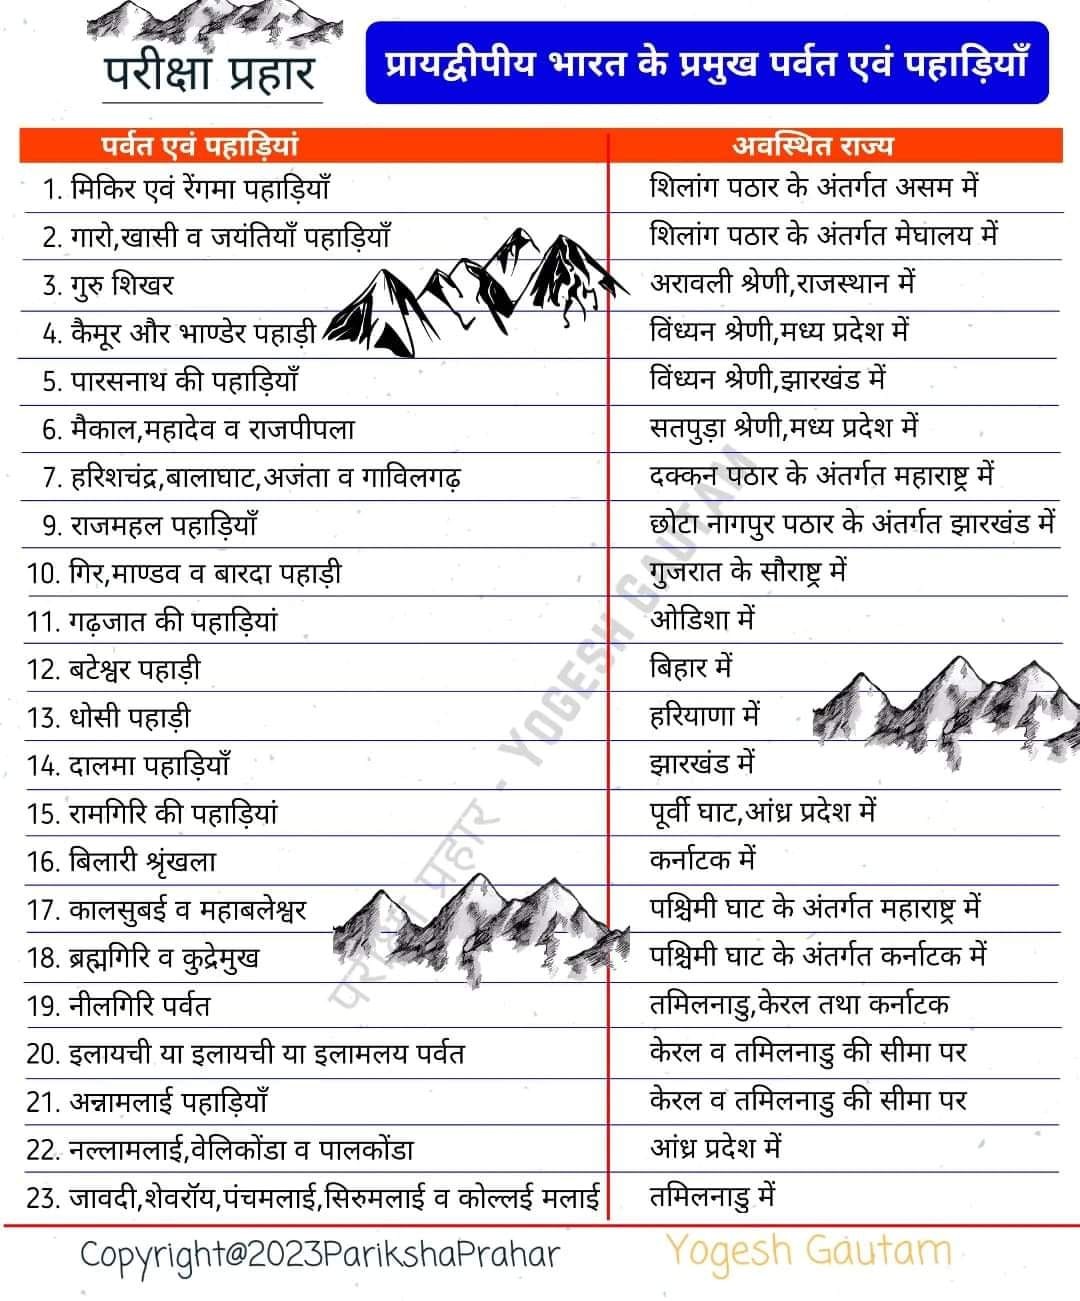 परीक्षा प्रहार
प्रायद्वीपीय भारत के प्रमुख पर्वत एवं पहाड़ियाँ
पर्वत एवं पहाड़ियां अवस्थित राज्य
1. मिकिर एवं रेंगमा पहाड़ियाँ शिलांग पठार के अंतर्गत असम में
2. गारो,खासी व जयंतियाँ पहाड़ियाँ शिलांग पठार के अंतर्गत मेघालय में
3. गुरु शिखर अरावली श्रेणी,राजस्थान में
4. कैमूर और भाण्डेर पहाड़ी विंध्यन श्रेणी,मध्य प्रदेश में
5. पारसनाथ की पहाड़ियाँ विंध्यन श्रेणी,झारखंड में
6. मैकाल,महादेव व राजपीपला सतपुड़ा श्रेणी,मध्य प्रदेश में
7. हरिशचंद्र,बालाघाट,अजंता व गाविलगढ़ दक्कन पठार के अंतर्गत महाराष्ट्र में
9. राजमहल पहाड़ियाँ छोटा नागपुर पठार के अंतर्गत झारखंड में
10. गिर,माण्डव व बारदा पहाड़ी गुजरात के सौराष्ट्र में
11. गढ़जात की पहाड़ियां ओडिशा में
12. बटेश्वर पहाड़ी बिहार में
13. धोसी पहाड़ी हरियाणा में
14. दालमा पहाड़ियाँ झारखंड में
15. रामगिरि की पहाड़ियां पूर्वी घाट,आंध्र प्रदेश में
16. बिलारी श्रृंखला कर्नाटक में
17. कालसुबई व महाबलेश्वर पश्चिमी घाट के अंतर्गत महाराष्ट्र में
18. ब्रह्मगिरि व कुद्रेमुख पश्चिमी घाट के अंतर्गत कर्नाटक में
19. नीलगिरि पर्वत तमिलनाडु,केरल तथा कर्नाटक
20. इलायची या इलायची या इलामलय पर्वत केरल व तमिलनाडु की सीमा पर
21. अन्नामलाई पहाड़ियाँ केरल व तमिलनाडु की सीमा पर
22. नल्लामलाई,वेलिकोंडा व पालकोंडा आंध्र प्रदेश में
23. जावदी,शेवरॉय,पंचमलाई,सिरुमलाई व कोल्लई मलाई तमिलनाडु में
परीक्षा प्रहार - YOGESH GAUTAM
Copyright@2023ParikshaPrahar Yogesh Gautam